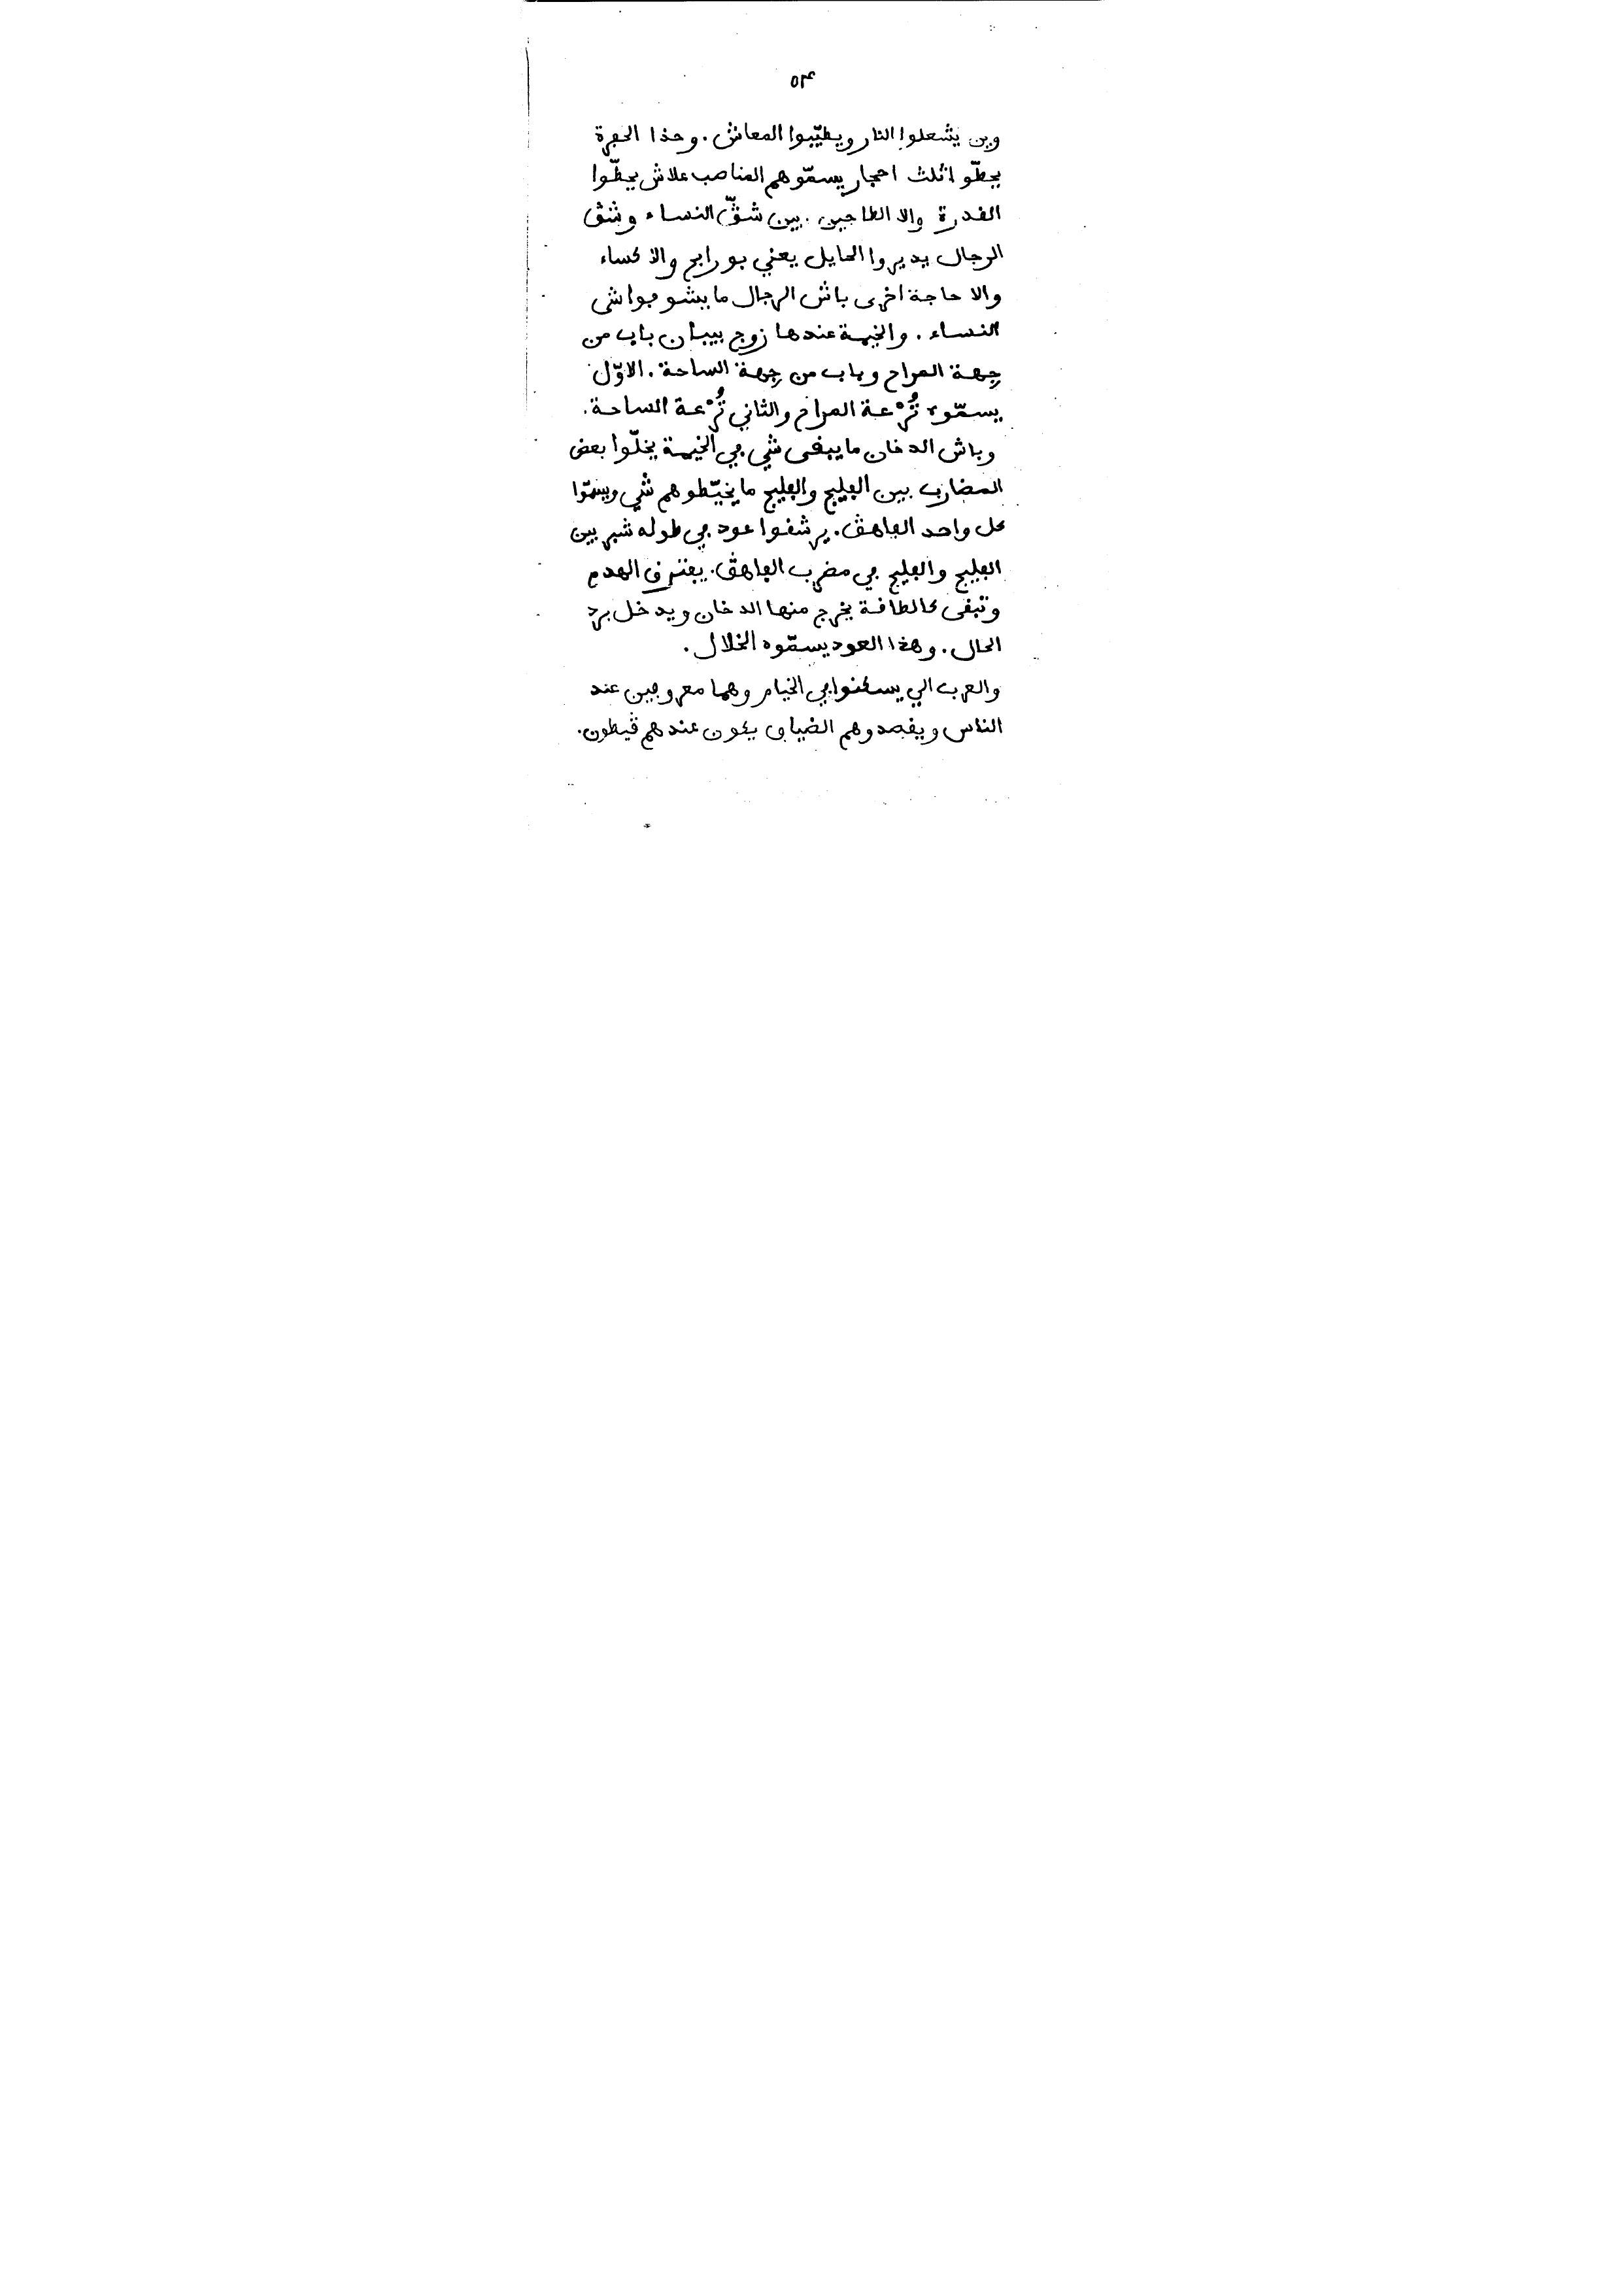 ٥٣
وين يشعلوا النار ويطيّبوا المعاش. وحذا الحفرة
يحطّوا ثلث احجار يسمّوهم المناصب علاش يحطّوا
القدرة والا الطاجين. بين شقّ النساء وشقّ
الرجال يديروا الحايل يعني بو رابح والا كساء
والا حاجة اخرى باش الرجال ما يشوفوا شي
النساء. والخيمة عندها زوج بيبان باب من
جهة المراح وباب من جهة الساحة. الاوّل
يسمّوه تُرْعة المراح والثاني تُرْعة الساحة.
وباش الدخان ما يبقى شي في الخيمة يخلّوا بعض
المضارب بين الفليج والفليج ما يخيّطوهم شي ويسمّوا
كل واحد الفاهق. يرشقوا عود في طوله شبر بين
الفليج والفليج في مضرب الفاهق. يفترق الهدم
وتبقى كالطاقة يخرج منها الدخان ويدخل برد
الحال. وهذا العود يسمّوه الخلال.
والعرب الي يسكنوا في الخيام وهما معروفين عند
الناس ويقصدوهم الضياف يكون عندهم قيطون.